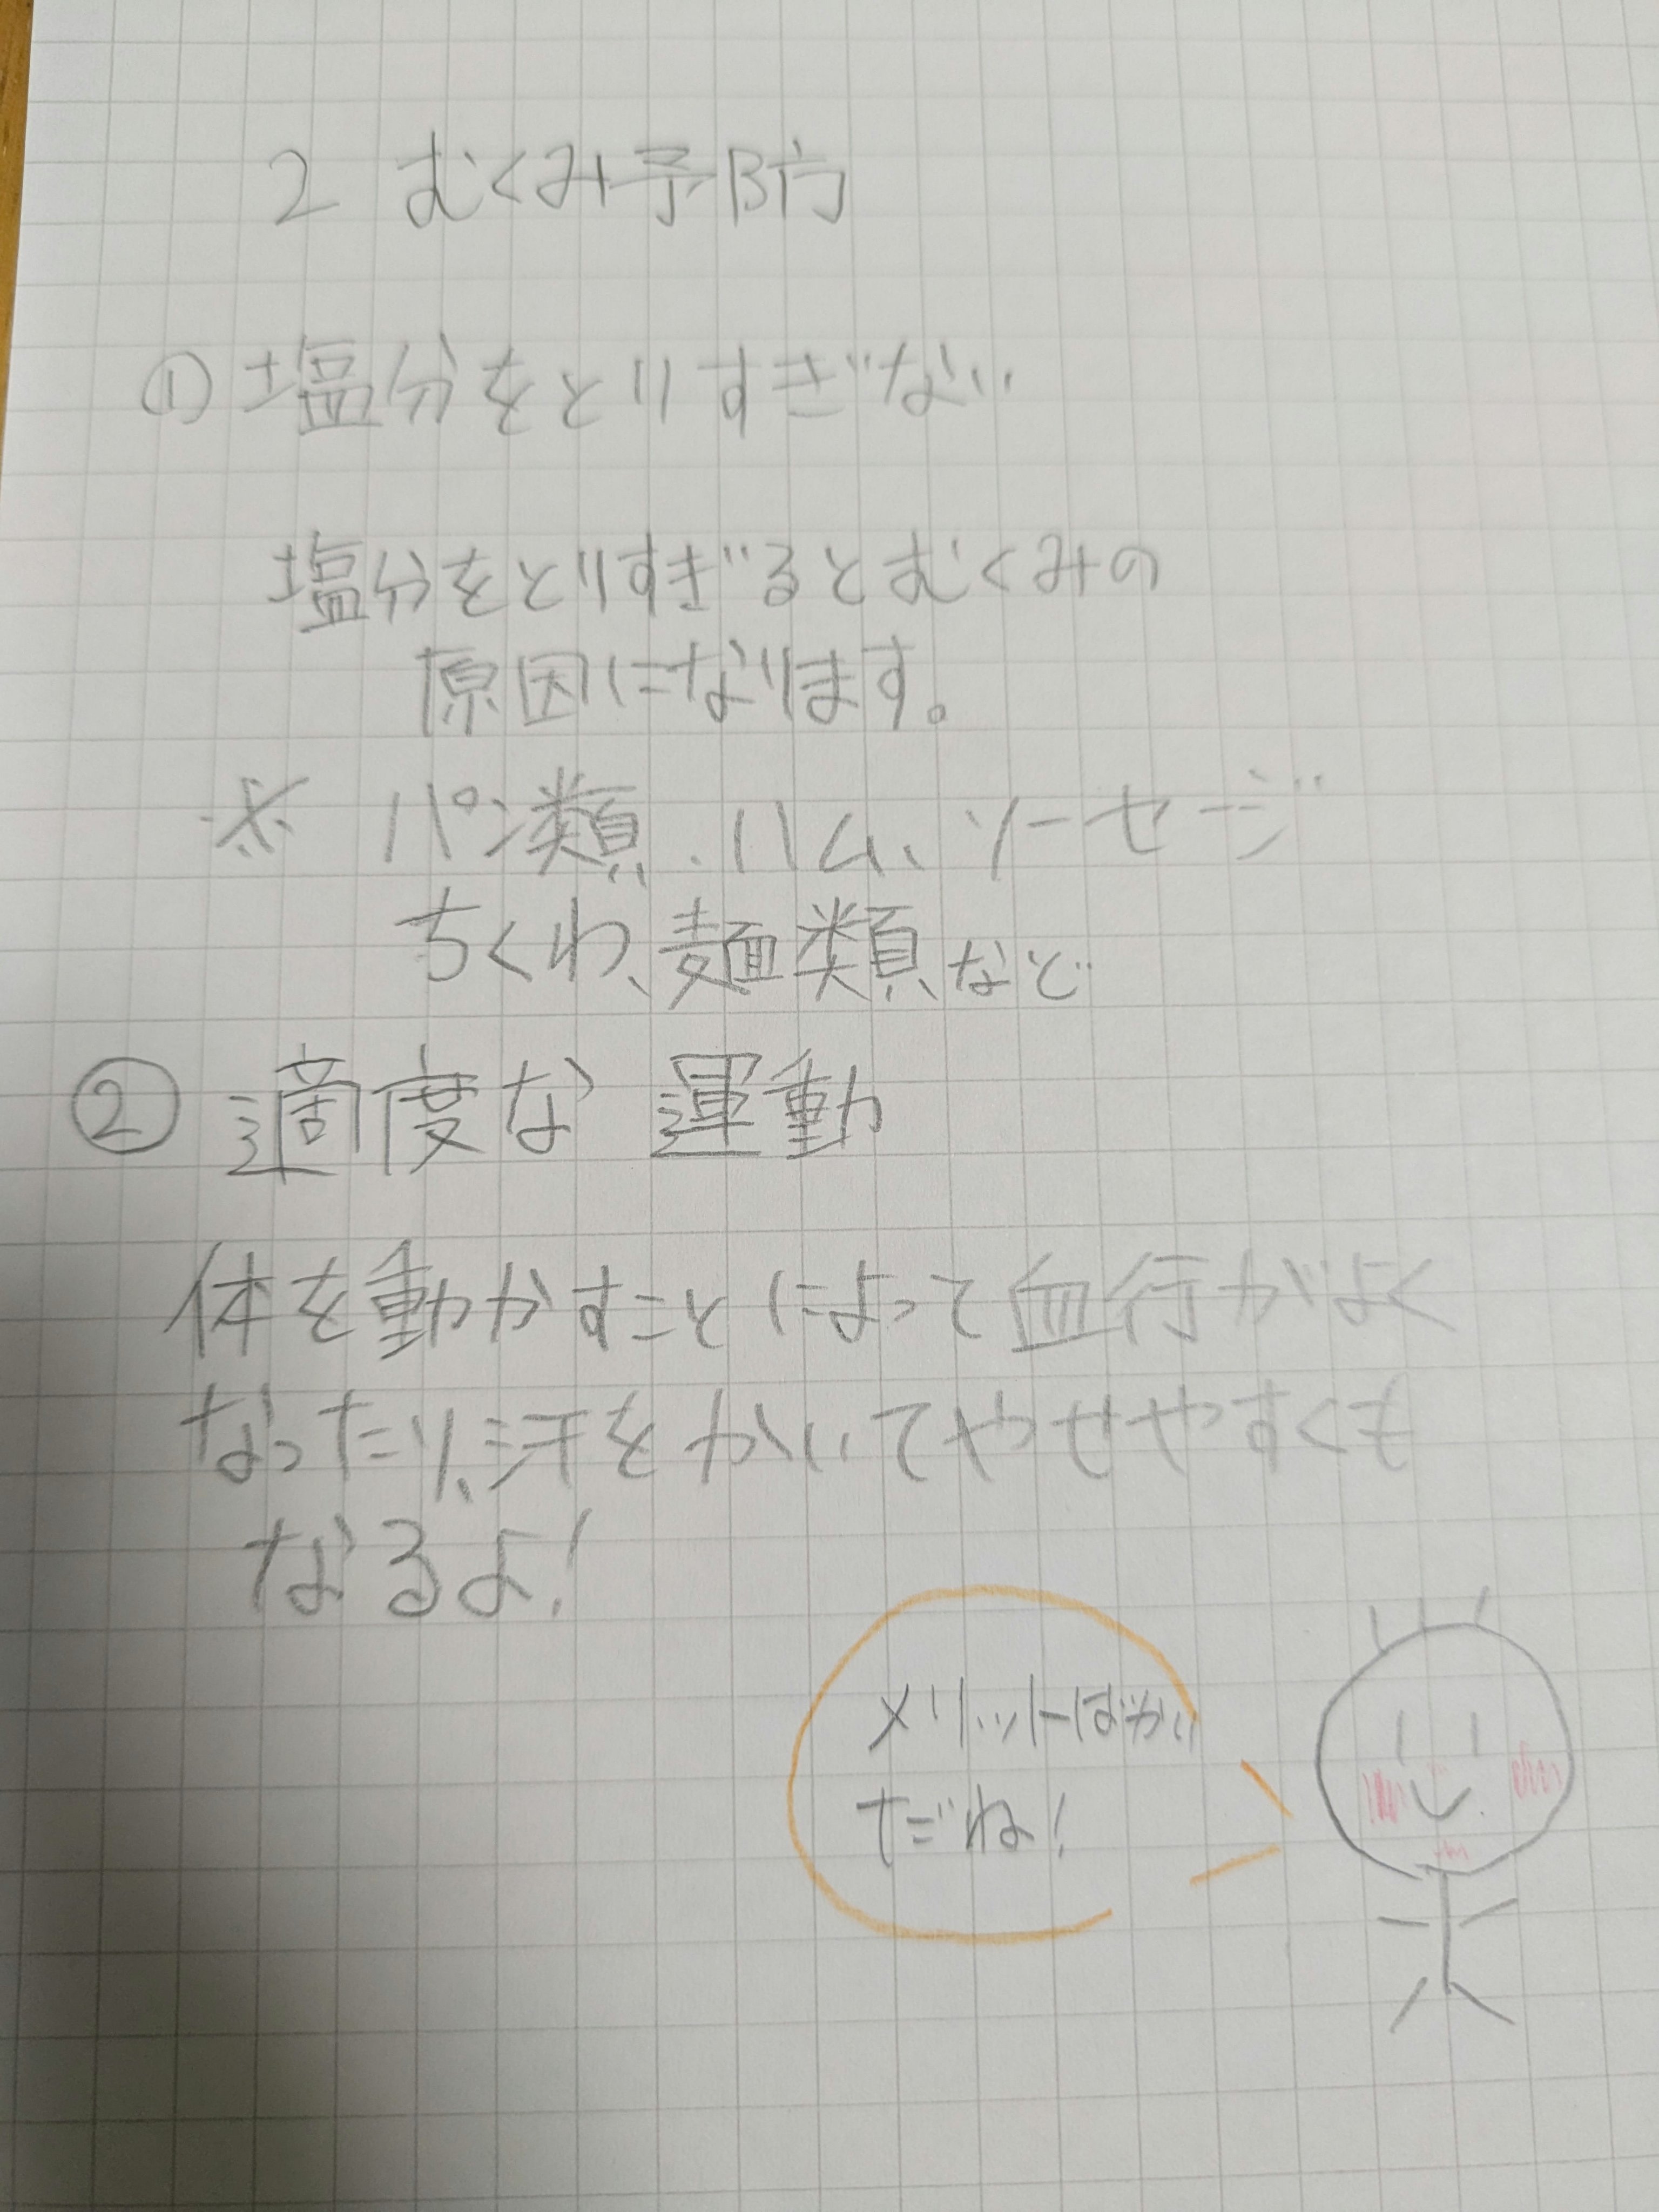 2 むくみ予防
① 塩分をとりすぎない
塩分をとりすぎるとむくみの
原因になります。
※ パン類、ハム、ソーセージ
ちくわ、麺類など
② 適度な運動
体を動かすことによって血行がよく
なったり、汗をかいてやせやすくも
なるよ！
メリットばかり
だね！